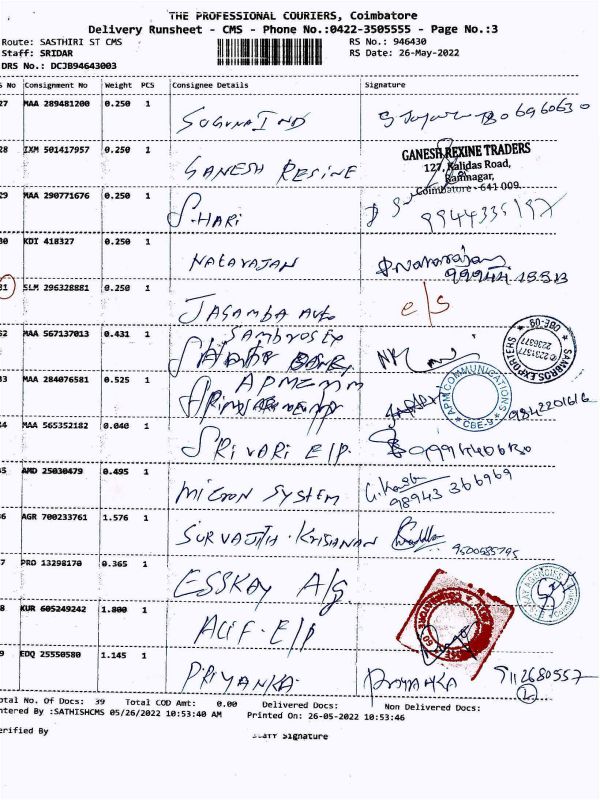 THE PROFESSIONAL COURIERS, Coimbatore
Delivery Runsheet - CMS - Phone No.:0422-3505555 - Page No.:3
Route: SASTHIRI ST CMS RS No.: 946430
Staff: SRIDAR RS Date: 26-May-2022
DRS No.: DCJB94643003
S No Consignment No Weight PCS Consignee Details Signature
27 MAA 289481200 0.250 1
SUGUNA IND
28 IXM 501417957 0.250 1
GANESH RESINE
GANESH REXINE TRADERS
127, Kalidas Road,
Ramnagar,
Coimbatore - 641 009.
29 MAA 290771676 0.250 1
S. HARI
30 KDI 418327 0.250 1
NATARAJAN
31 SLM 296328881 0.250 1
JAGAMBA Auto e/s
32 MAA 567137013 0.431 1
SAMBROS EX
SAMBROS EXPORTERS
33 MAA 284076581 0.525 1
APM COMMUNICATIONS
CBE-9
9842201616
34 MAA 565352182 0.040 1
SRIVARI E/P.
35 AMD 25030479 0.495 1
MICRON SYSTEM
98943 366969
36 AGR 700233761 1.576 1
SURVAJITH. KRISHNAN
9500685795
37 PRO 13298170 0.365 1
ESSKAY A/g
38 KUR 605249242 1.800 1
ALIF. E/P
39 EDQ 25550580 1.145 1
PRIYANKA. PRIYANKA 9112680557
Total No. Of Docs: 39 Total COD Amt: 0.00 Delivered Docs: Non Delivered Docs:
Entered By :SATHISHCMS 05/26/2022 10:53:40 AM Printed On: 26-05-2022 10:53:46
Verified By Staff Signature